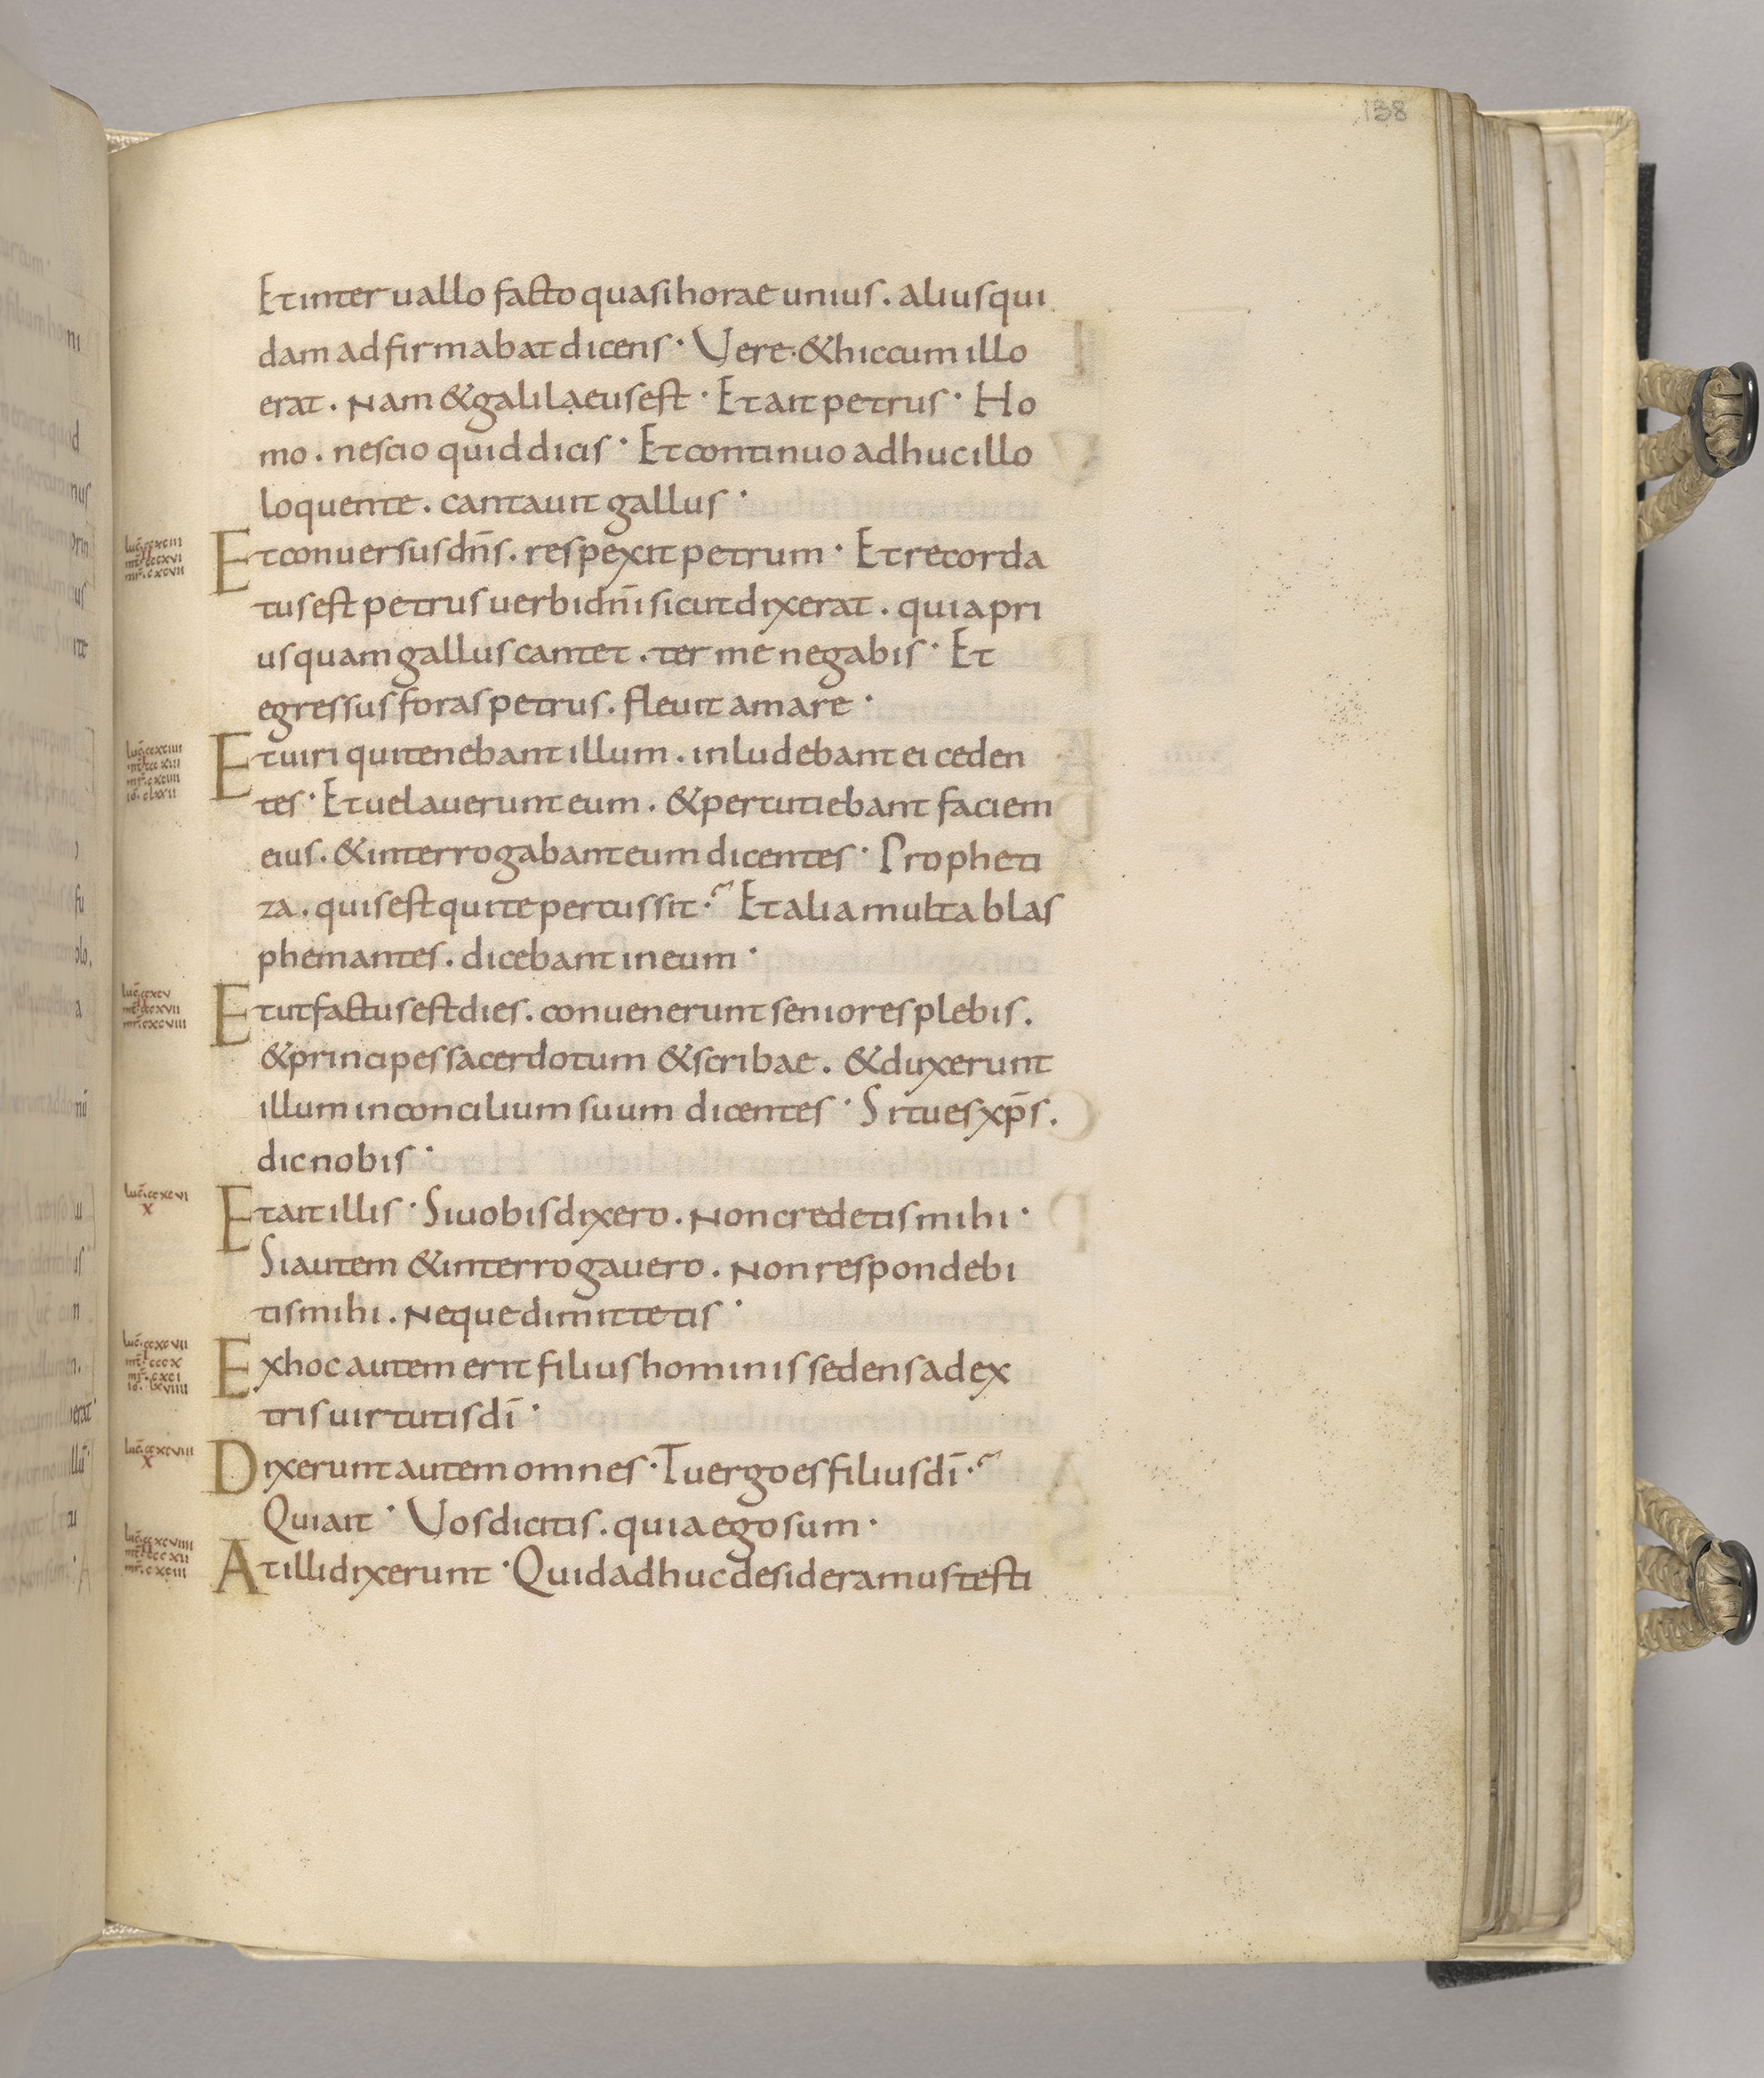 138
Et inter uallo facto quasi horae unius . alius qui
dam adfirmabat dicens · Vere · & hic cum illo
erat . Nam & galilaeus est · Et ait petrus · Ho
mo . nescio quid dicis · Et continuo adhuc illo
loquente . cantauit gallus ·
Et conuersus dn̄s . respexit petrum · Et recorda
tus est petrus uerbi dn̄i sicut dixerat . quia pri
us quam gallus cantet . ter me negabis · Et
egressus foras petrus . fleuit amare ·
Et uiri qui tenebant illum . inludebant ei ceden
tes · Et uelauerunt eum . & percutiebant faciem
eius . & interrogabant eum dicentes · Propheti
za . quis est qui te percussit ·~ Et alia multa blas
phemantes . dicebant in eum ·
Et ut factus est dies . conuenerunt seniores plebis .
& principes sacerdotum & scribae . & duxerunt
illum in concilium suum dicentes · Si tu es xp̄s .
dic nobis ·
Et ait illis · Si uobis dixero . Non credetis mihi ·
Si autem & interrogauero . Non respondebi
tis mihi . Neque dimittetis ·
Ex hoc autem erit filius hominis sedens a dex
tris uirtutis dī ·
Dixerunt autem omnes · Tu ergo es filius dī ·~
Qui ait · Vos dicitis . quia ego sum ·
At illi dixerunt · Quid adhuc desideramus testi